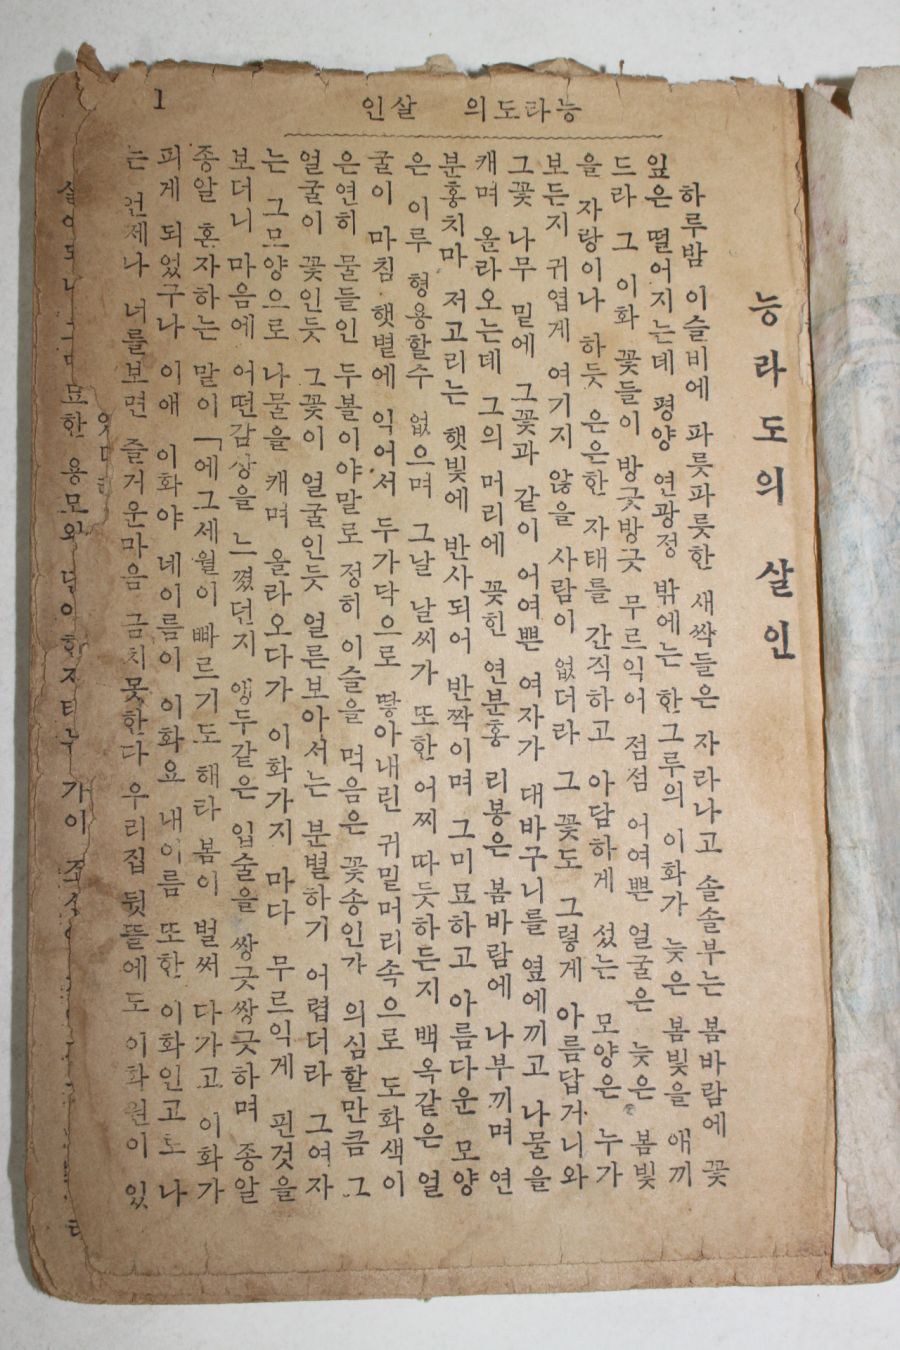 1
인살 의도라능
능라도의 살인
하루밤 이슬비에 파릇파릇한 새싹들은 자라나고 솔솔부는 봄바람에 꽃
잎은 떨어지는데 평양 연광정 밖에는 한그루의 이화가 늦은 봄빛을 애끼
드라 그 이화 꽃들이 방긋방긋 무르익어 점섬 어여쁜 얼굴은 늦은 봄빛
을 자랑이나 하듯 은은한 자태를 간직하고 아담하게 섰는 모양은 누가
보든지 귀엽게 여기지 않을 사람이 없더라 그 꽃도 그렇게 아름답거니와
그꽃 나무 밑에 그꽃과 같이 어여쁜 여자가 대바구니를 옆에끼고 나물을
캐며 올라오는데 그의 머리에 꽂힌 연분홍 리봉은 봄바람에 나부끼며 연
분홍치마 저고리는 햇빛에 반사되어 반짝이며 그미묘하고 아름다운 모양
은 이루 형용할수 없으며 그날 날씨가 또한 어찌 따듯하든지 백옥같은 얼
굴이 마침 햇볕에 익어서 두가닥으로 땋아내린 귀밑머리속으로 도화색이
은연히 물들인 두볼이야말로 정히 이슬을 먹음은 꽃송인가 의심할만큼 그
얼굴이 꽃인듯 그꽃이 얼굴인듯 얼른보아서는 분별하기 어렵더라 그여자
는 그모양으로 나물을 캐며 올라오다가 이화가지 마다 무르익게 핀것을
보더니 마음에 어떤감상을 느꼈던지 앵두같은 입술을 쌍긋쌍긋하며 종알
종알 혼자하는 말이 「에그세월이 빠르기도 해라 봄이 벌써 다가고 이화가
피게 되었구나 이애 이화야 네이름이 이화요 내이름 또한 이화인고로 나
는 언제나 너를보면 즐거운마음 금치못한다 우리집 뒷뜰에도 이화원이 있
묘한 용모와 가이